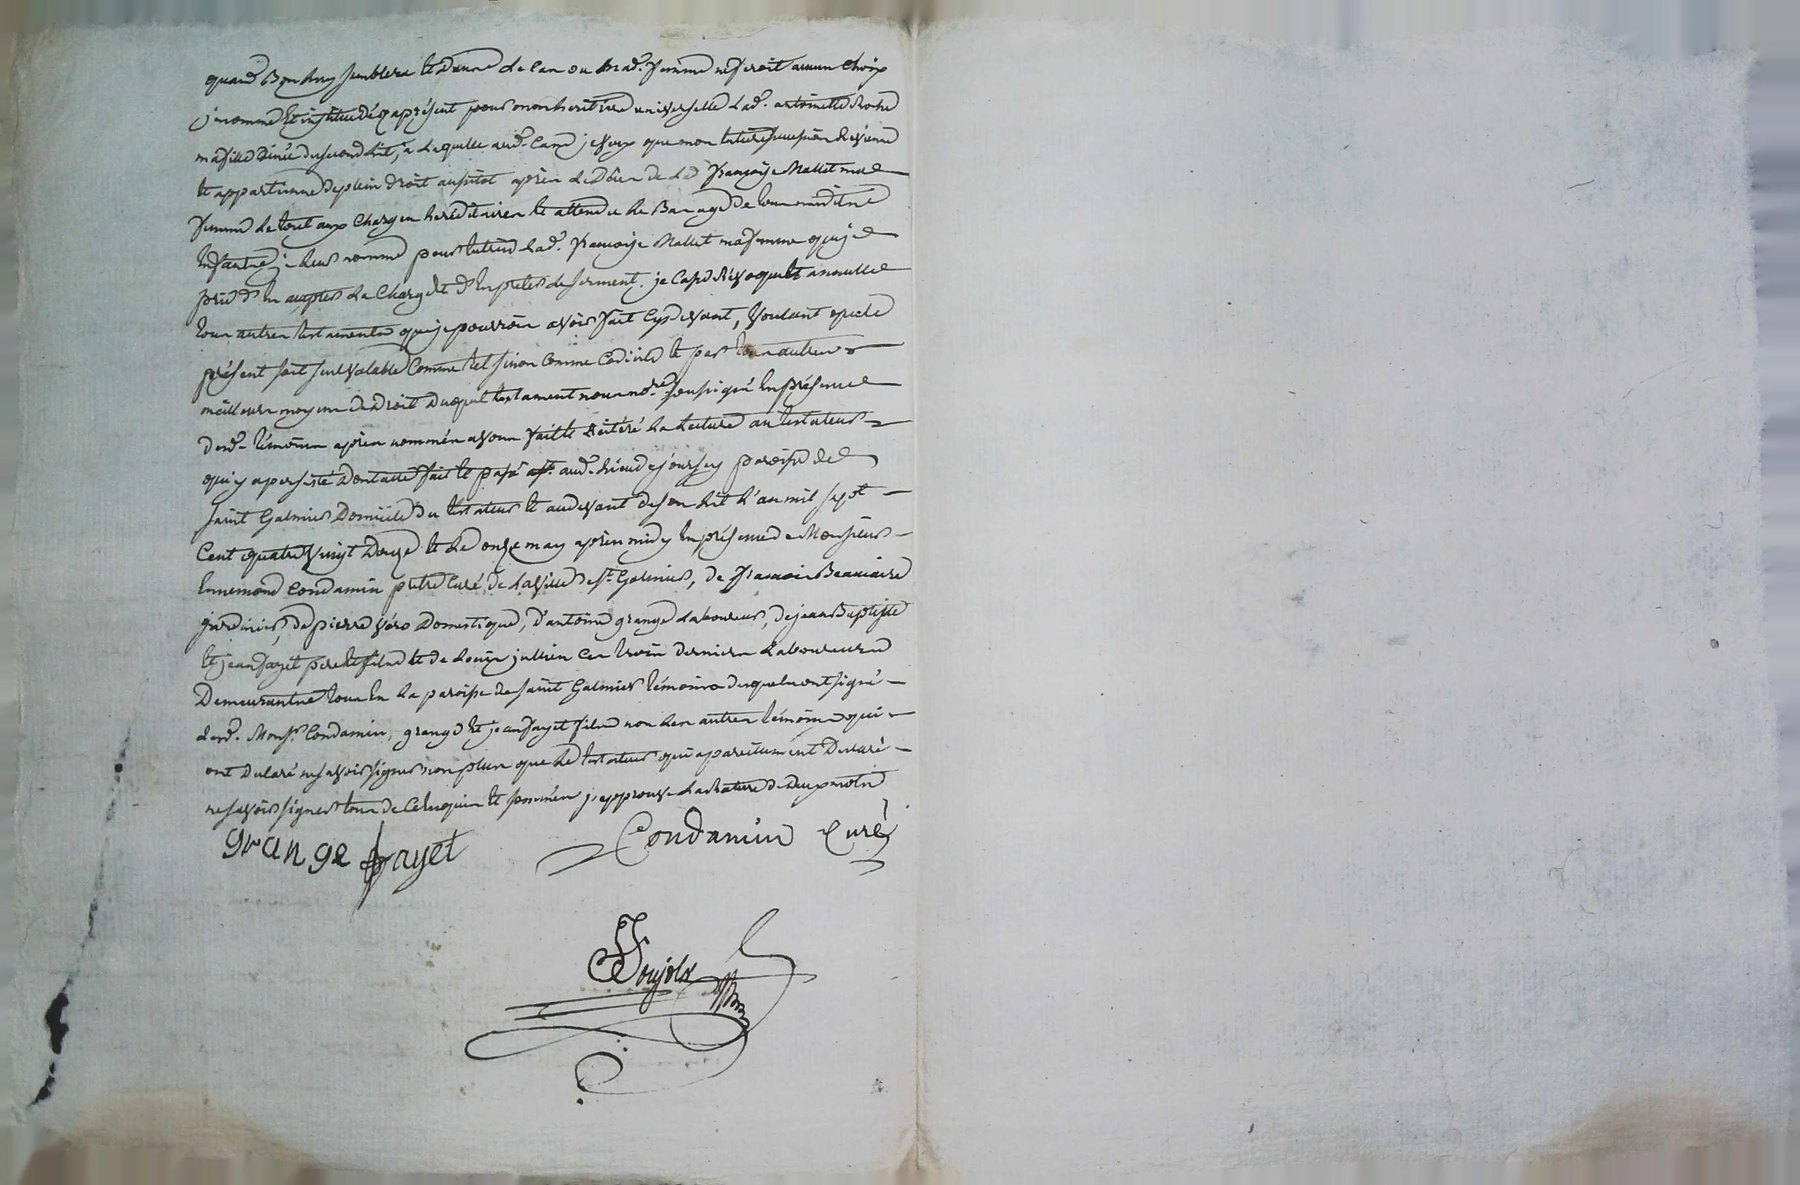 quand Bon luy semblera et Dans le Cas ou Mad. femme ne feroit aucun Choix
je nomme et institue dez apresent pour mon heritiere universelle lad. antoinette
ma fille du second lit, a laquelle aud. Cas je veux que mon entiere succession
et appartienne de plein droit aussitot apres le Déces de lad. françoise Mallet
femme le tout aux Charges hereditaires et attendu le Bas age de tous mesd.
Enfants je leur nomme pour tutrice lad. françoise Mallet ma femme que je
prie d'En accepter la Charge et d'En preter le serment. je Casse Révoque et annulle
tous autres testaments que je pourrois avoir fait Cy devant, Voulant que le
présent soit seul valable Comme tel sinon Comme Codicile et par tous autres
meilleurs moyens de Droit Duquel testament nous no.re soussigné En présence
desd. témoins après nommés avons faitte Réitéré la lecture au testateur
qui y a persisté Dont acte fait et passé aud. lieu de paroisse de
saint Galmier Domicile du testateur et audevant de son Lit L'an mil sept
Cent quatre Vingt Douze et le onze may après midy En présence de Monsieur
Ennemond Condamin prêtre Curé de la Ville de St. Galmier, de françois
jardinier, de pierre Domestique, d'antoine grange Laboureur, de jean Baptiste
et jean fayet pere et fils et de Louis jullien Ces trois derniers Laboureurs
Demeurants tous En la paroisse de saint Galmier témoins desquels ont signé
led. Mons.r Condamin, grange et jean fayet fils non les autres témoins qui
ont Déclaré ne savoir signer non plus que le testateur qui a pareillement Déclaré
ne savoir signer tous de Ce Enquis et sommés j'approuve la Rature de Deux mots
grange fayet Condamin Curé